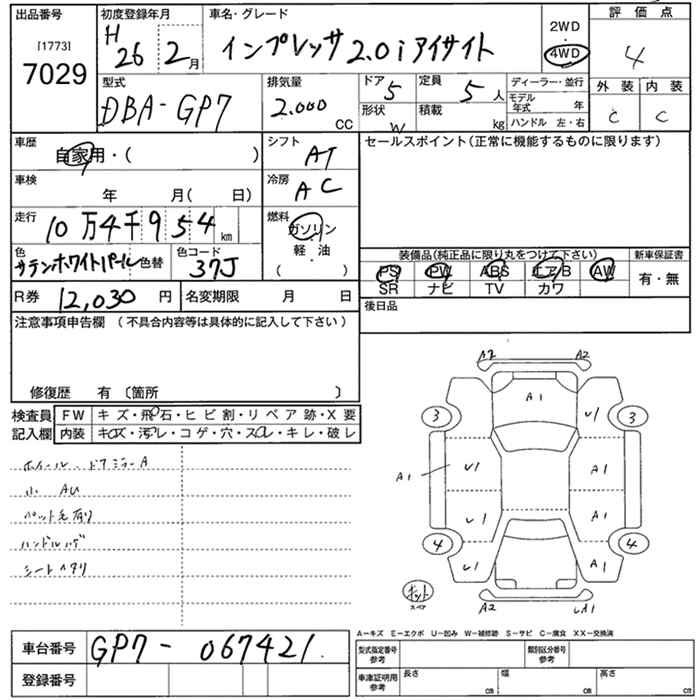 出品番号 初度登録年月 車名・グレード 2WD ・ 4WD 評価点
[1773]
7029
H 26 2月 インプレッサ 2.0iアイサイト 4
型式 排気量 ドア 5 定員 5人 ディーラー・並行 外装 内装
DBA-GP7 2.000 CC 形状 W 積載 kg モデル年式 年 C C
ハンドル 左・右
車歴 自家用・( ) シフト AT セールスポイント(正常に機能するものに限ります)
車検 年 月( 日) 冷房 AC
走行 10万4千954km 燃料 ガソリン・軽油 ( )
色 サテンホワイトパール 色替 色コード 37J 装備品(純正品に限り丸をつけて下さい) 新車保証書
PS PW ABS エアB AW 有・無
SR ナビ TV カワ
R券 12,030円 名変期限 月 日 後日品
注意事項申告欄 (不具合内容等は具体的に記入して下さい)
修復歴 有〔箇所 〕
検査員 FW キズ・飛石・ヒビ割・リペア跡・X要
記入欄 内装 キズ・汚レ・コゲ・穴・スレ・キレ・破レ
ホイール、ドアミラーA
小 AU
ペット毛有り
ハンドルハゲ
シートヘタリ
A2 A2
A1
3 U1 U1 3
A1 U1 A1
U1 A1
4 U1 A1 4
スペア
A2 UA1
A−キズ E−エクボ U−凹み W−補修跡 S−サビ C−腐食 XX−交換済
車台番号 GP7-067421
型式指定番号 参考 類別区分番号 参考
登録番号 車庫証明用 参考 長さ cm 幅 cm 高さ cm